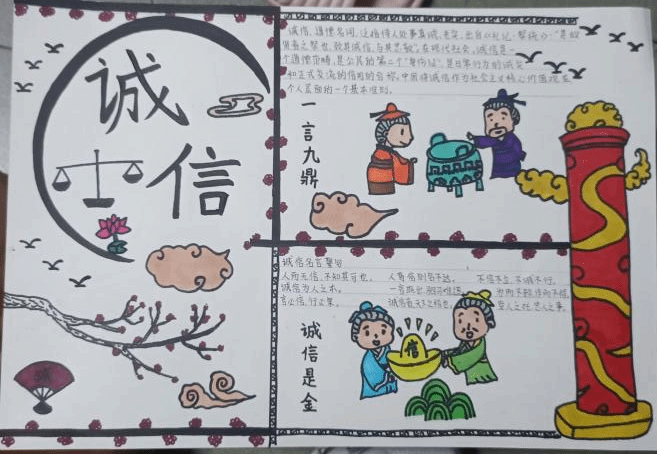 诚
信
诚信,道德名词,泛指待人处事真诚、老实,出自《礼记·祭统》:“是故
贤者之祭也,致其诚信,与其忠敬”,在现代社会,诚信是一
个道德范畴,是公民的第二个“身份证”,是日常行为的诚实
和正式交流的信用的合称,中国将诚信作为社会主义核心价值观在
个人层面的一个基本准则。
一言九鼎
诚信名言警句
人而无信,不知其可也。 人背信则名不达。 不信不立,不诚不行。
诚信为人之本。 一言既出,驷马难追。
言必信,行必果。 诚信者,天下之结也。
诚信是金
信
诚